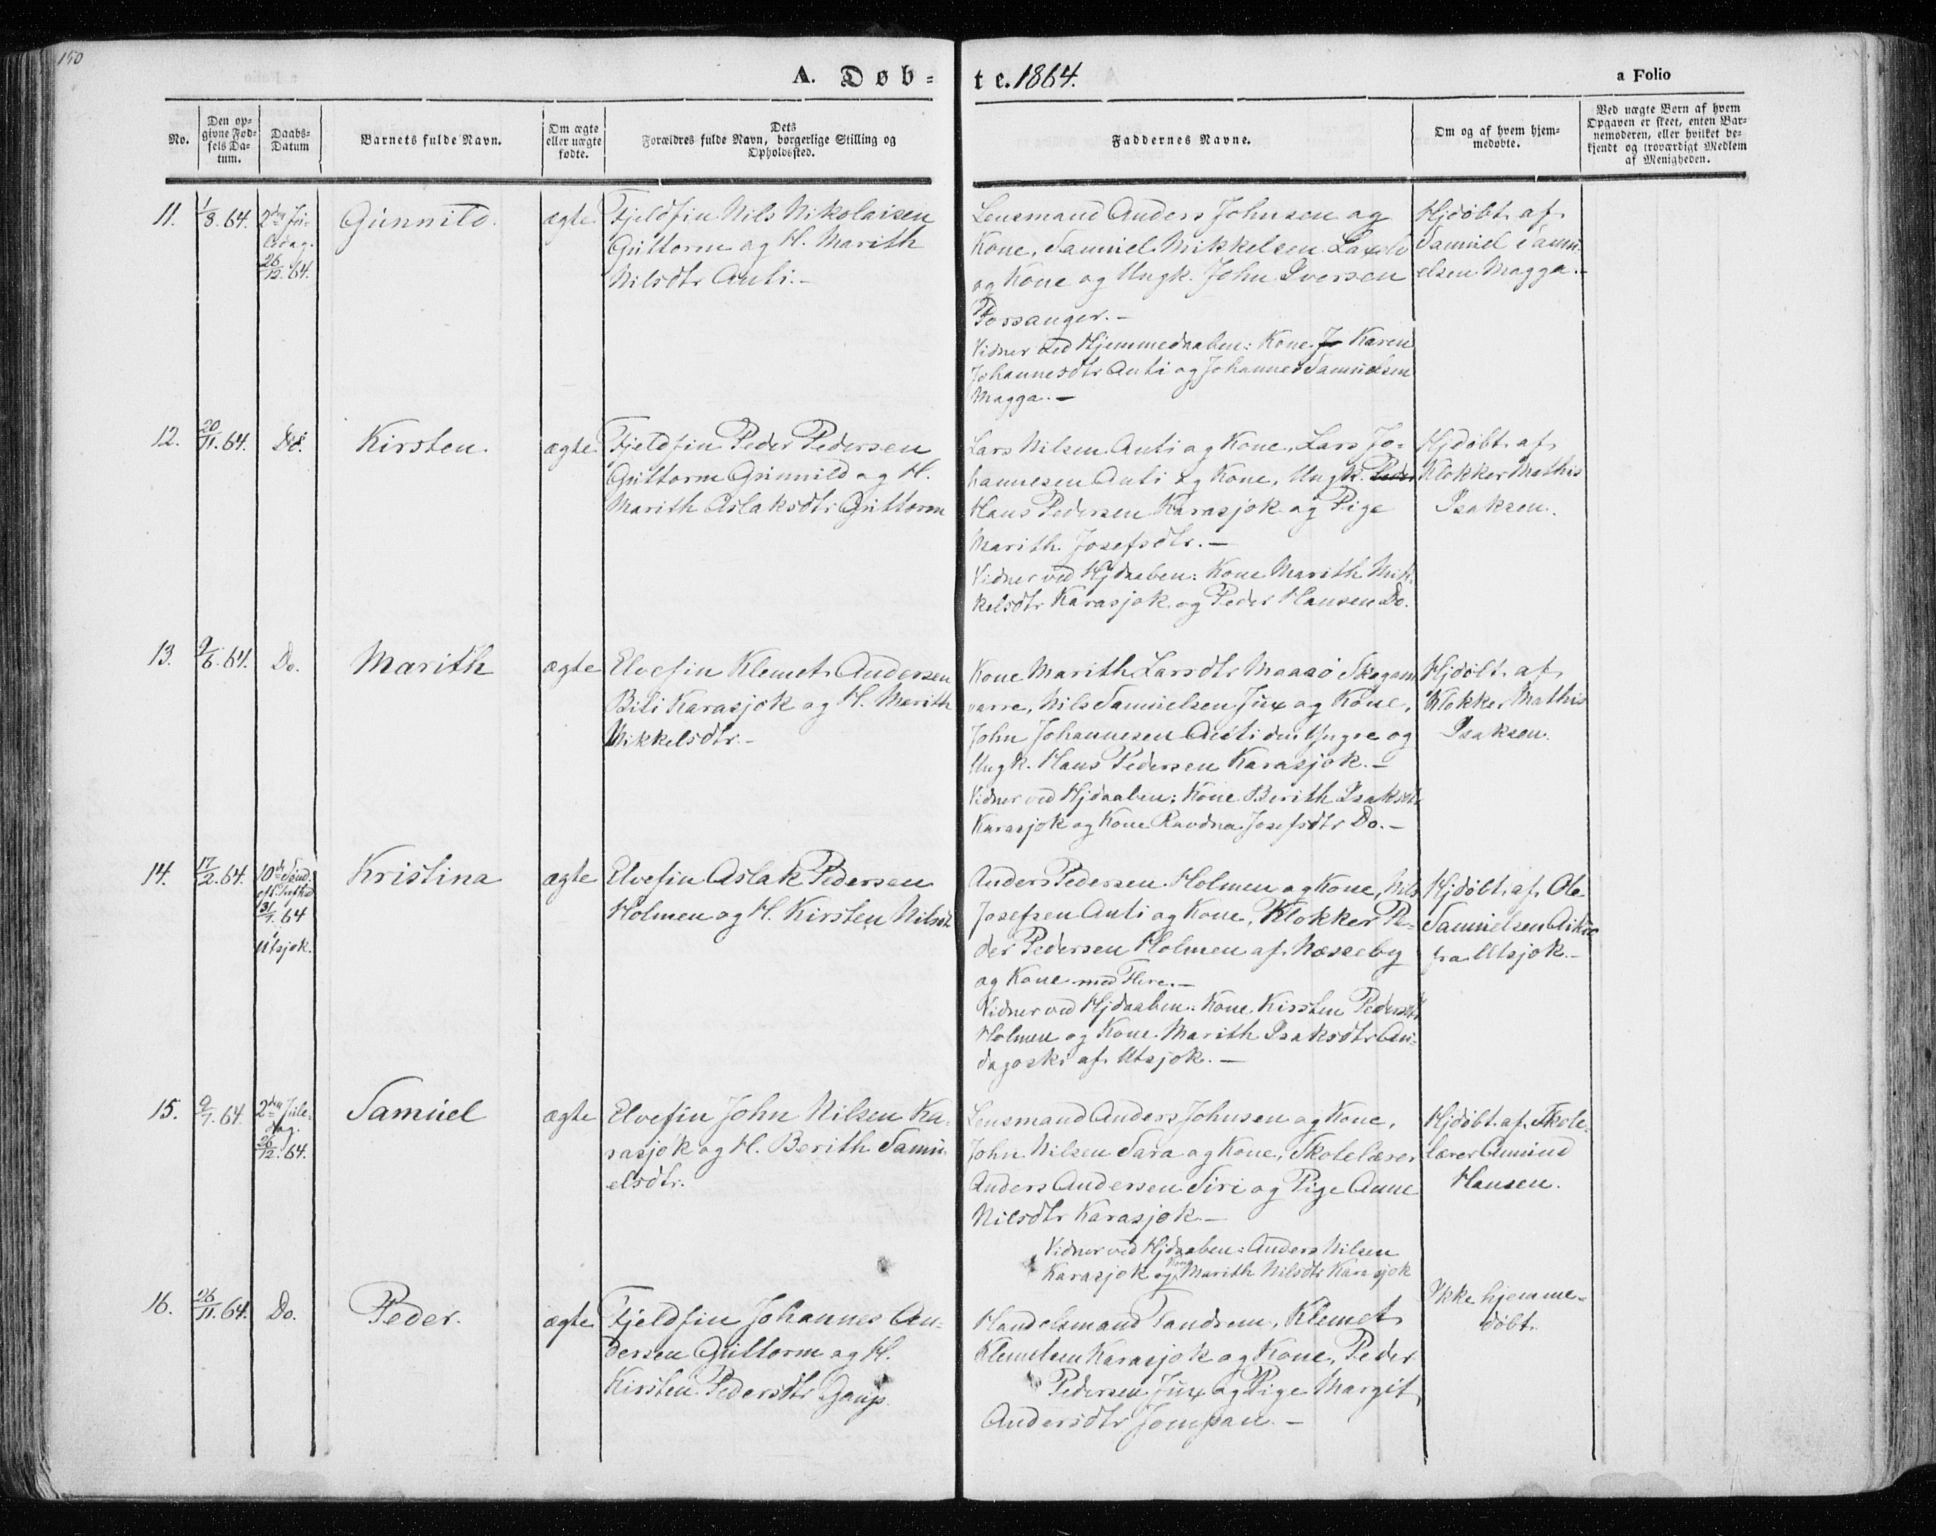 150
A. Døb-
te. 1864.
a Folio
No.
Den op-
givne Fød-
sels Da-
tum.
Daabs-
Datum
Barnets fulde Navn.
Om ægte
eller uægte
fødte.
Dets
Forældres fulde Navn, borgerlige Stilling og
Opholdssted.
Faddernes Navne.
Om og af hvem hjem-
medøbte.
Ved uægte Børn af hvem
Opgaven er skeet, enten Bar-
nemoderen, eller hvilket be-
kjendt og troværdigt Medlem
af Menigheden.
11.
1/8. 64.
2den Ju-
ledag.
26/12. 64.
Gunnild.
ægte.
Fjeldfin Nils Nikolaisen
Guttorm og H. Marith
Nilsdtr Anti.-
Lensmand Anders Johnsen og
Kone, Samuel Mikkelsen
og Kone og Ungk. John Iversen
Porsanger.-
Vidner ved Hjemmedaaben: Kone Karen
Johannesdtr Anti og Johannes Samuelsen
Magga.-
Hjdøbt. af
Samuel Samu-
elsen Magga.-
12.
20/11. 64.
Do.
Kirsten.
ægte.
Fjeldfin Peder Pedersen
Guttorm Gunnild og H.
Marith Aslaksdtr Guttorm
Lars Nilsen Anti og Kone, Lars Jo-
hannesen Anti og Kone, Ungk. Peder
Hans Pedersen Karasjok og Pige
Marith Josefsdtr.-
Vidner ved Hjdaaben: Kone Marith Mik-
kelsdtr Karasjok og Peder Hansen Do.
Hjdøbt. af
Klokker Mathis
Isaksen.
13.
9/6. 64.
Do.
Marith
ægte
Elvefin Klemet Andersen
Biti Karasjok og H. Marith
Mikkelsdtr.-
Kone Marith Larsdtr Maasø Skogan-
varre, Nils Samuelsen Jux og Kone,
John Johannesen Anti den Yngre og
Ungk. Hans Pedersen Karasjok.-
Vidner ved Hjdaaben: Kone Berith Isaksdtr
Karasjok og Kone Ravdna Josefsdtr Do.-
Hjdøbt. af
Klokker Mathis
Isaksen.
14.
17/2. 64.
10de Sønd.
eft. Trefold.
31/7. 64
Utsjok.
Kristina
ægte
Elvefin Aslak Pedersen
Holmen og H. Kirsten Nilsdtr
Anders Pedersen Holmen og Kone, Nils
Josefsen Anti og Kone, Klokker Pe-
der Pedersen Holmen af Næsseby
og Kone med Flere.-
Vidner ved Hjdaaben: Kone Kirsten Pedersdtr
Holmen og Kone Marith Isaksdtr An-
dagoski af Utsjok.-
Hjdøbt. af Ole
Samuelsen
fra Utsjok.-
15.
9/7. 64
2den Jule-
dag.
26/12. 64.
Samuel
ægte
Elvefin John Nilsen Ka-
rasjok og H. Berith Samu-
elsdtr.
Lensmand Anders Johnsen og Kone,
John Nilsen Sara og Kone, Skolelærer
Anders Andersen Siri og Pige Anne
Nilsdtr Karasjok.-
Vidner ved Hjdaaben: Anders Nilsen
Karasjok og Kone Marith Nilsdtr Karasjok
Hjdøbt. af Skole-
lærer Amund
Hansen.
16.
26/11. 64.
Do.
Peder.
ægte
Fjeldfin Johannes An-
dersen Guttorm og H.
Kirsten Pedersdtr Gaup
Handelsmand Fandrem, Klemet
Klemetsen Karasjok og Kone, Peder
Pedersen Jux og Pige Margit
Andersdtr Jompan.-
Ikke hjemme-
døbt.